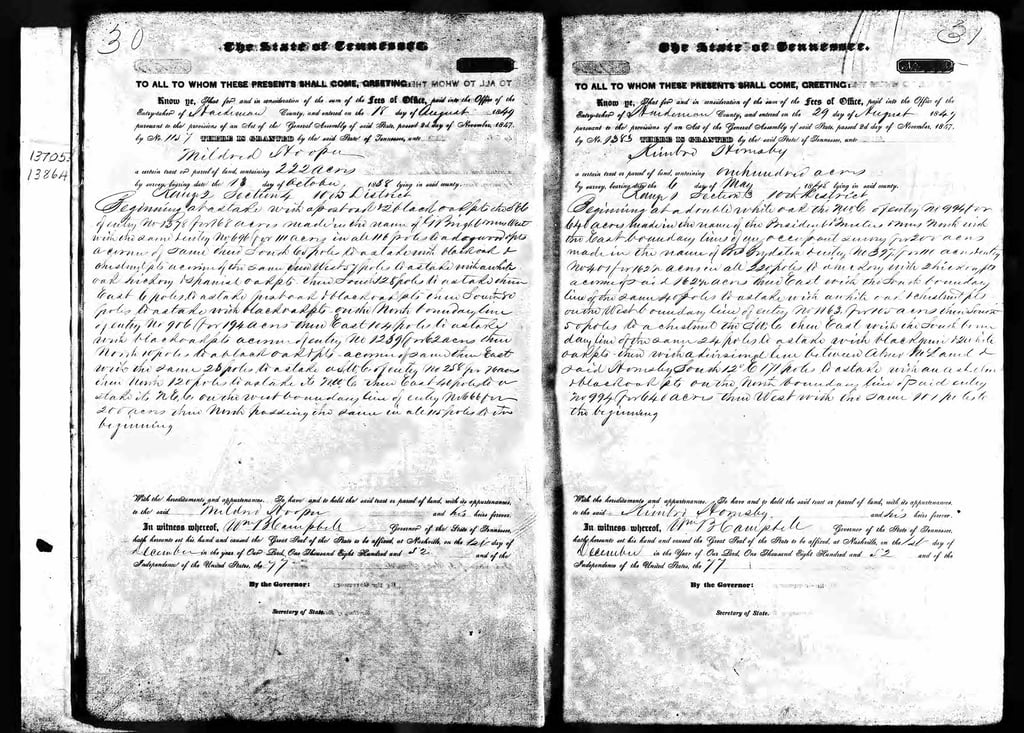 30
The State of Tennessee.
TO ALL TO WHOM THESE PRESENTS SHALL COME, GREETING:
Know ye, That for and in consideration of the sum of the Fees of Office, paid into the Office of the
Entry-taker of Hardeman County, and entered on the 18 day of August 1849
pursuant to the provisions of an Act of the General Assembly of said State, passed 2d day of November, 1847,
by No. THERE IS GRANTED by the said State of Tennessee, unto
Mildred Hooper
a certain tract or parcel of land, containing 222 acres
by survey, bearing date the 13 day of October 1838 lying in said county.
Range 2 Section 4 10th District
Beginning at a stake with a post oak & 2 black oak pts the
of entry No 1378 for 168 acres made in the name of Wright runs West
with the same & entry No 696 for 111 acres in all 116 poles to a dogwood pts
a corner of same then South 60 poles to a stake with black oak &
chestnut pts a corner of the same then West 57 poles to a stake with a white
oak hickory & Spanish oak pts then South 128 poles to a stake then
East 6 poles to a stake post oak & black oak pts then South
poles to a stake with black oak pts on the North boundary line
of entry No 906 for 194 acres then East 114 poles to a stake
with black oak pts a corner of entry No 1239 for 62 acres then
North 10 poles to a black oak & pts a corner of same then East
with the same 28 poles to a stake of entry No 258 for acres
then North 120 poles to a stake its then East 40 poles to a
stake its on the west boundary line of entry No 666 for
200 acres then North passing the same in all poles to the
beginning
With the hereditaments and appurtenances. To have and to hold the said tract or parcel of land, with its appurtenances,
to the said Mildred Hooper and his heirs forever.
In witness whereof, Wm B Campbell Governor of the State of Tennessee,
hath hereunto set his hand and caused the Great Seal of the State to be affixed, at Nashville, on the 1st day of
December in the year of Our Lord, One Thousand Eight Hundred and 52 and of the
Independence of the United States, the 77
By the Governor:
Secretary of State.
13705
1386A
31
The State of Tennessee.
TO ALL TO WHOM THESE PRESENTS SHALL COME, GREETING:
Know ye, That for and in consideration of the sum of the Fees of Office, paid into the Office of the
Entry-taker of Hardeman County, and entered on the 29 day of August 1849
pursuant to the provisions of an Act of the General Assembly of said State, passed 2d day of November, 1847,
by No. 2383 THERE IS GRANTED by the said State of Tennessee, unto
Hornsby
a certain tract or parcel of land, containing one hundred acres
by survey, bearing date the 6 day of May lying in said county.
Range 1 Section 3 10th District
Beginning at a double white oak the of entry No 994 for
640 acres made in the name of the President & Trustees runs North with
the East boundary line of an occupant survey for 200 acres
made in the name of entry No 397 for 111 acres & entry
No 401 for 162½ acres in all 220 poles to a hickory with 2 hickory pts
a corner of said 162½ acres then East with the South boundary
line of the same 40 poles to a stake with a white oak & chestnut pts
on the West boundary line of entry No 1163 for 105 acres then South
50 poles to a chestnut the then East with the South boun
dary line of the same 24 poles to a stake with black gum & 2 white
oak pts then with a divisional line between Abner &
said Hornsby South 12° E 171 poles to a stake with an ash elm
& black oak pts on the North boundary line of said entry
No 994 for 640 acres then West with the same poles to
the beginning
With the hereditaments and appurtenances. To have and to hold the said tract or parcel of land, with its appurtenances,
to the said Hornsby and his heirs forever.
In witness whereof, Wm B Campbell Governor of the State of Tennessee,
hath hereunto set his hand and caused the Great Seal of the State to be affixed, at Nashville, on the 1st day of
December in the Year of Our Lord, One Thousand Eight Hundred and 52 and of the
Independence of the United States, the 77
By the Governor:
Secretary of State.